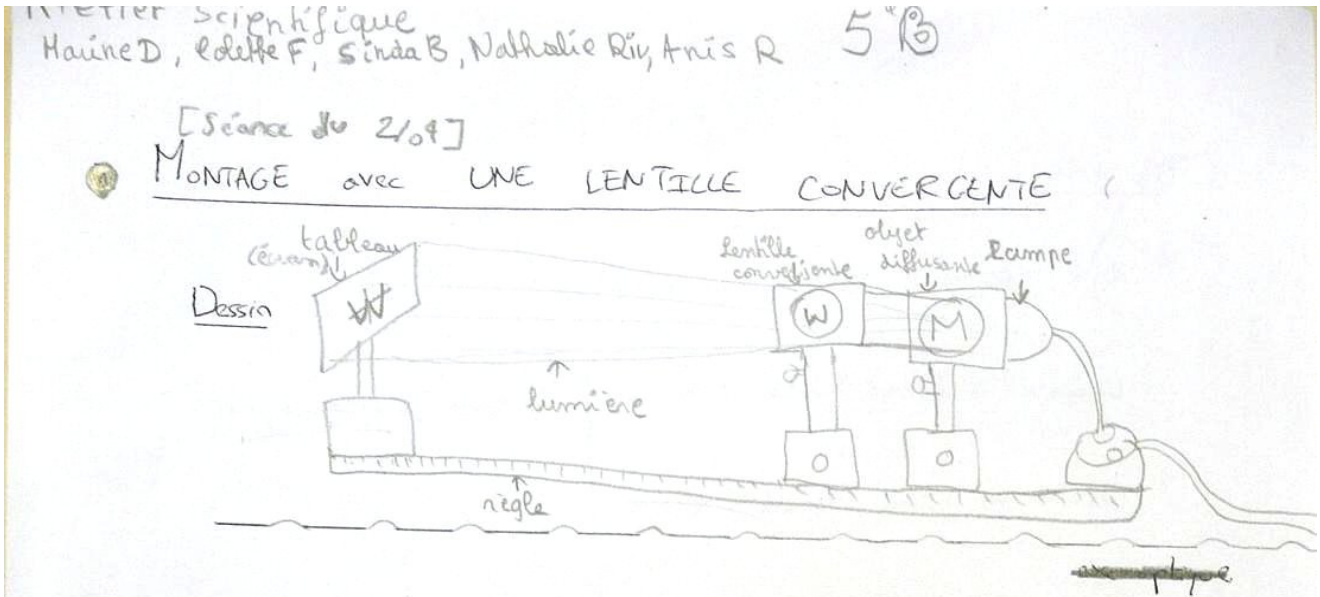 Atelier Scientifique
Marine D, Colette F, Sinda B, Nathalie Riv, Anis R 5°B
[Séance du 2/04]
1 MONTAGE avec UNE LENTILLE CONVERGENTE
tableau
(écran)
lentille
convergente
objet
diffusante
Lampe
Dessin
W
W
M
lumière
règle